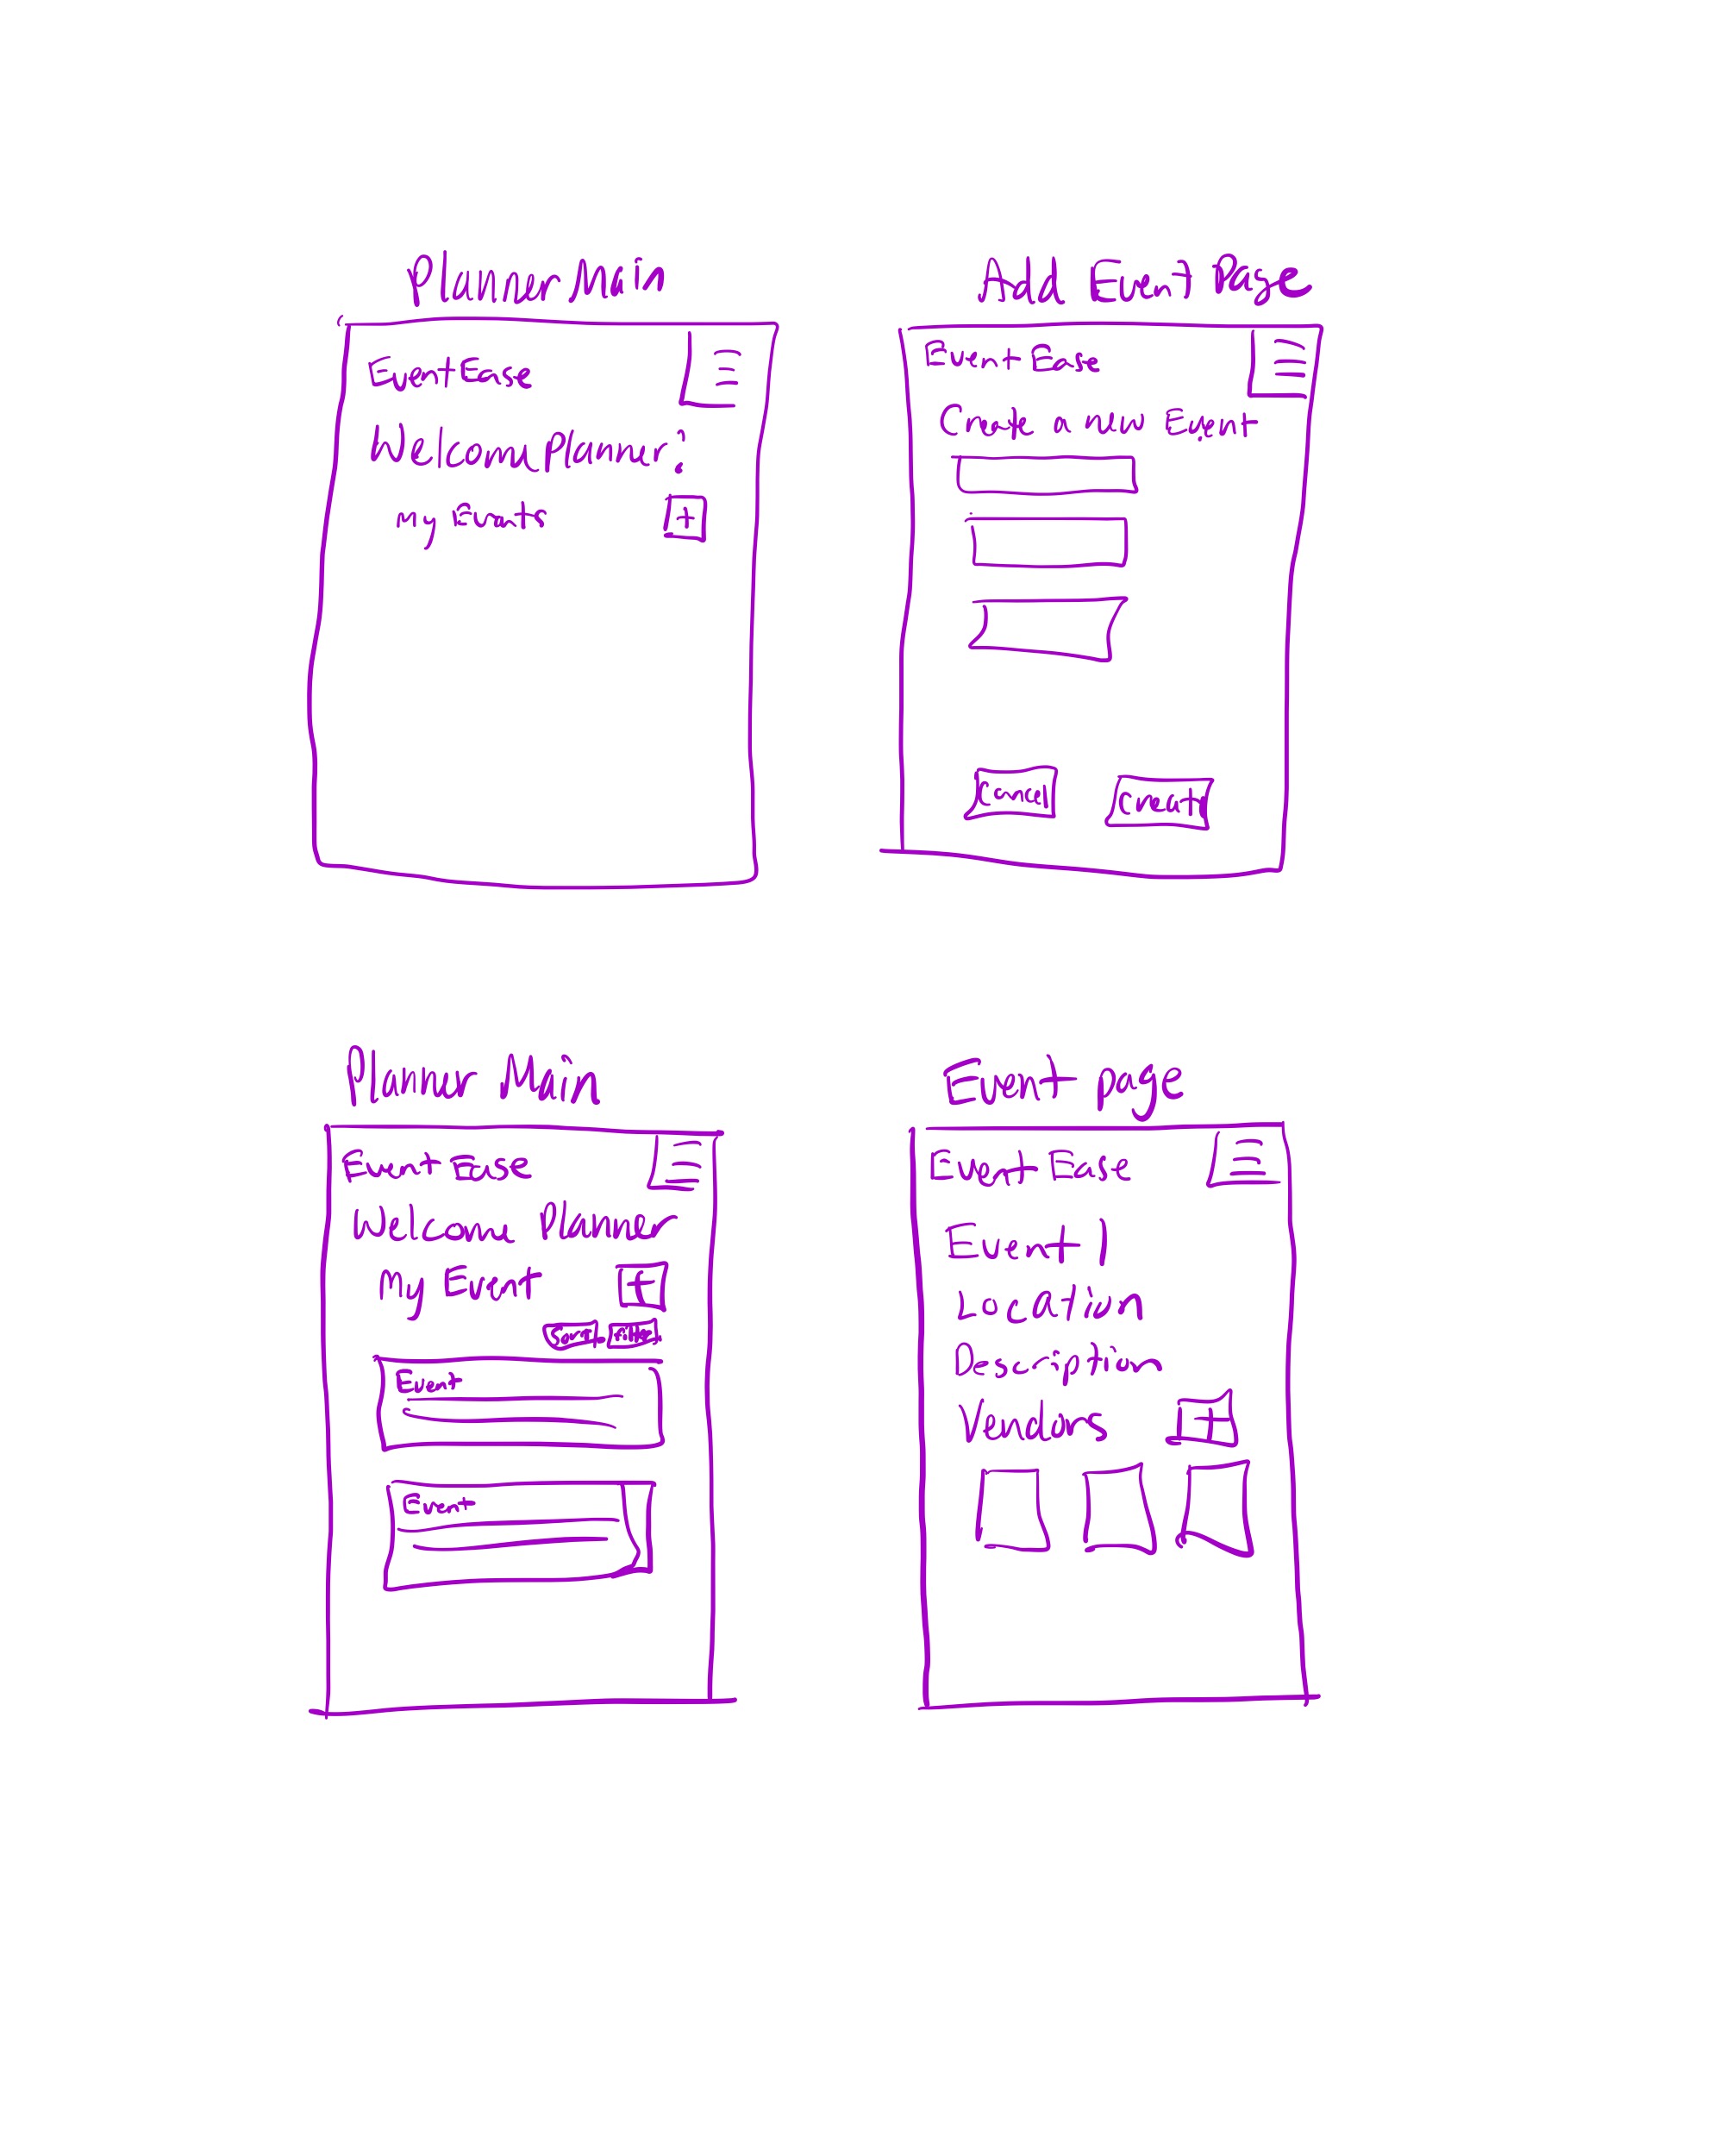 Planner Main
EventEase
Welcome planner!
my Events
+
Add Event Page
Event Ease
Create a new Event
Cancel
Create
Planner Main
Event Ease
Welcome Planner
My Event
+
Sort Filter
Event
Event
Event page
Event Ease
Event 1
Location
Description
Vendors
+